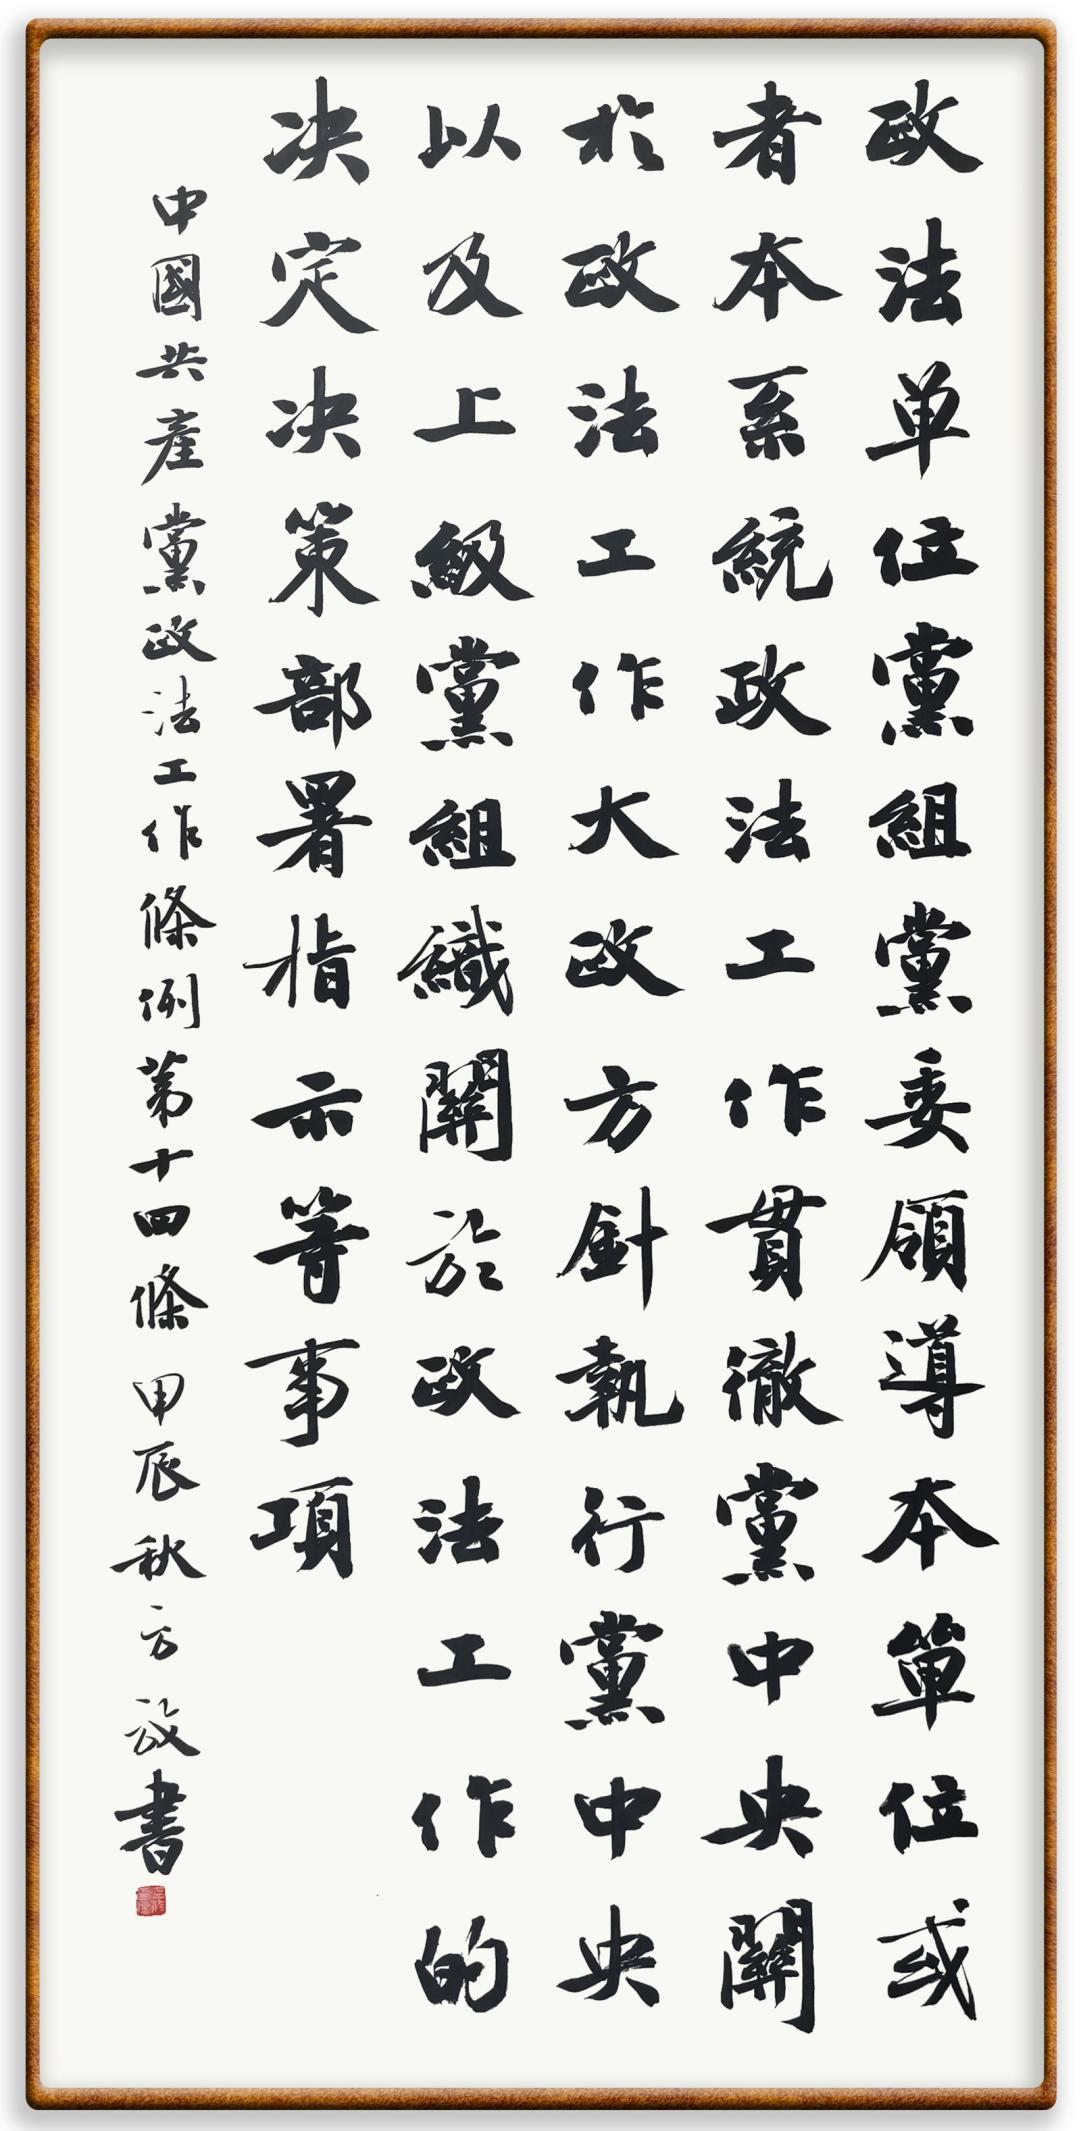 政法单位黨組黨委領導本單位或
者本系統政法工作貫徹黨中央關
於政法工作大政方針執行黨中央
以及上級黨組織關於政法工作的
决定决策部署指示等事項
中國共產黨政法工作條例第十四條 甲辰秋 方放書